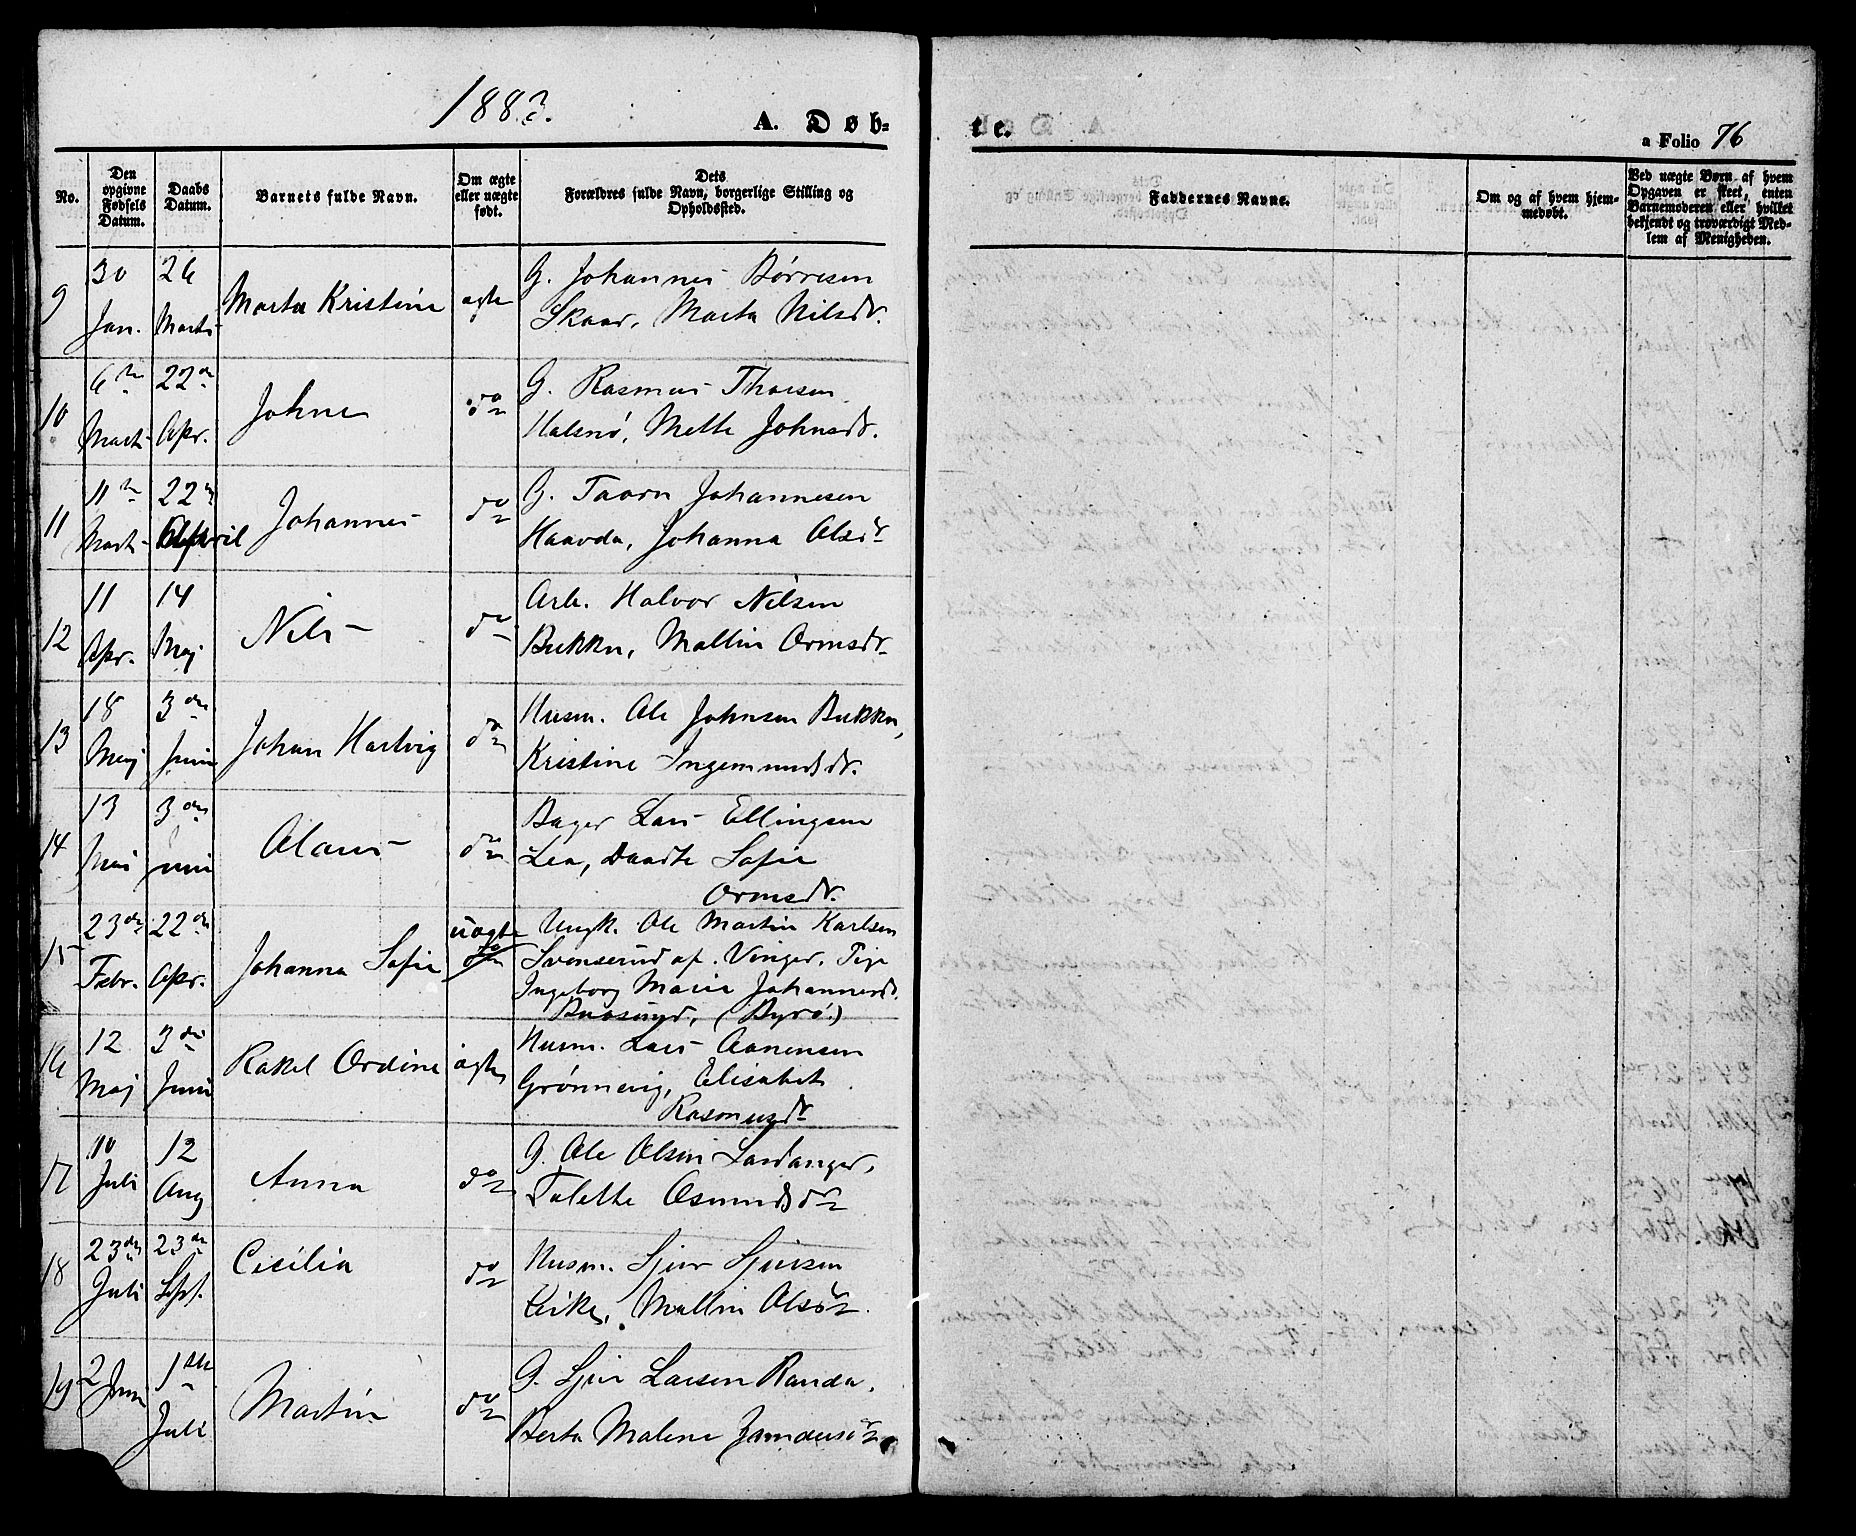 1883.
A. Døb-
te.
a Folio 76
No.
Den opgivne Fødsels Datum.
Daabs Datum.
Barnets fulde Navn.
Om ægte eller uægte født.
Dets Forældres fulde Navn, borgerlige Stilling og Opholdssted.
Faddernes Navne.
Om og af hvem hjemmedøbt.
Ved uægte Børn af hvem Opgaven er skeet, enten Barnemoderen eller hvilket bekjendt og troværdigt Medlem af Menigheden.
9 30 Jan. 26 Marts Marta Kristine ægte G. Johannes Børresen
Skaar, Marta Nilsdr.
10 6te Marts 22de Apr. Johne do G. Rasmus Thorsen
Halsnø, Mette Johnsdr.
11 11te Marts 22de April Johannes do G. Taarn Johannesen
Haavda, Johanna Olsdr
12 11 Apr. 14 Maj Nils do Arb. Halvor Nilsen
Bukkn, Mallin Ormsdr
13 18 Maj 3die Juni Johan Hartvig do Husm. Ole Johnsen Bukkn,
Kristine Ingemundsdr.
14 13 Mai 3die Juni Olaus do Bager Lars Ellingsen
Lea, Daadte Sofie
Ormsdr.
15 23de Febr. 22de Apr. Johanna Sofie uægte do Ungk. Ole Martin Karlsen
Svenserud af Vinger, Pige
Ingeborg Maria Johannesd.
(Byrø.)
16 12 Maj 3die Juni Rakel Ordine ægte Husm. Lars Aanensen
Grønnevig, Elisabet
Rasmusdr
17 10 Juli 12 Aug Anna do G. Ole Olsen Landanger,
Talette Osmundsdr
18 23de Juli 23de Spt. Cecilia do Husm. Sjur Sjursen
Eike, Mallin Olsdr.
19 2 Juni 1ste Juli Martin do G. Sjur Larsen Randa,
Berta Malene